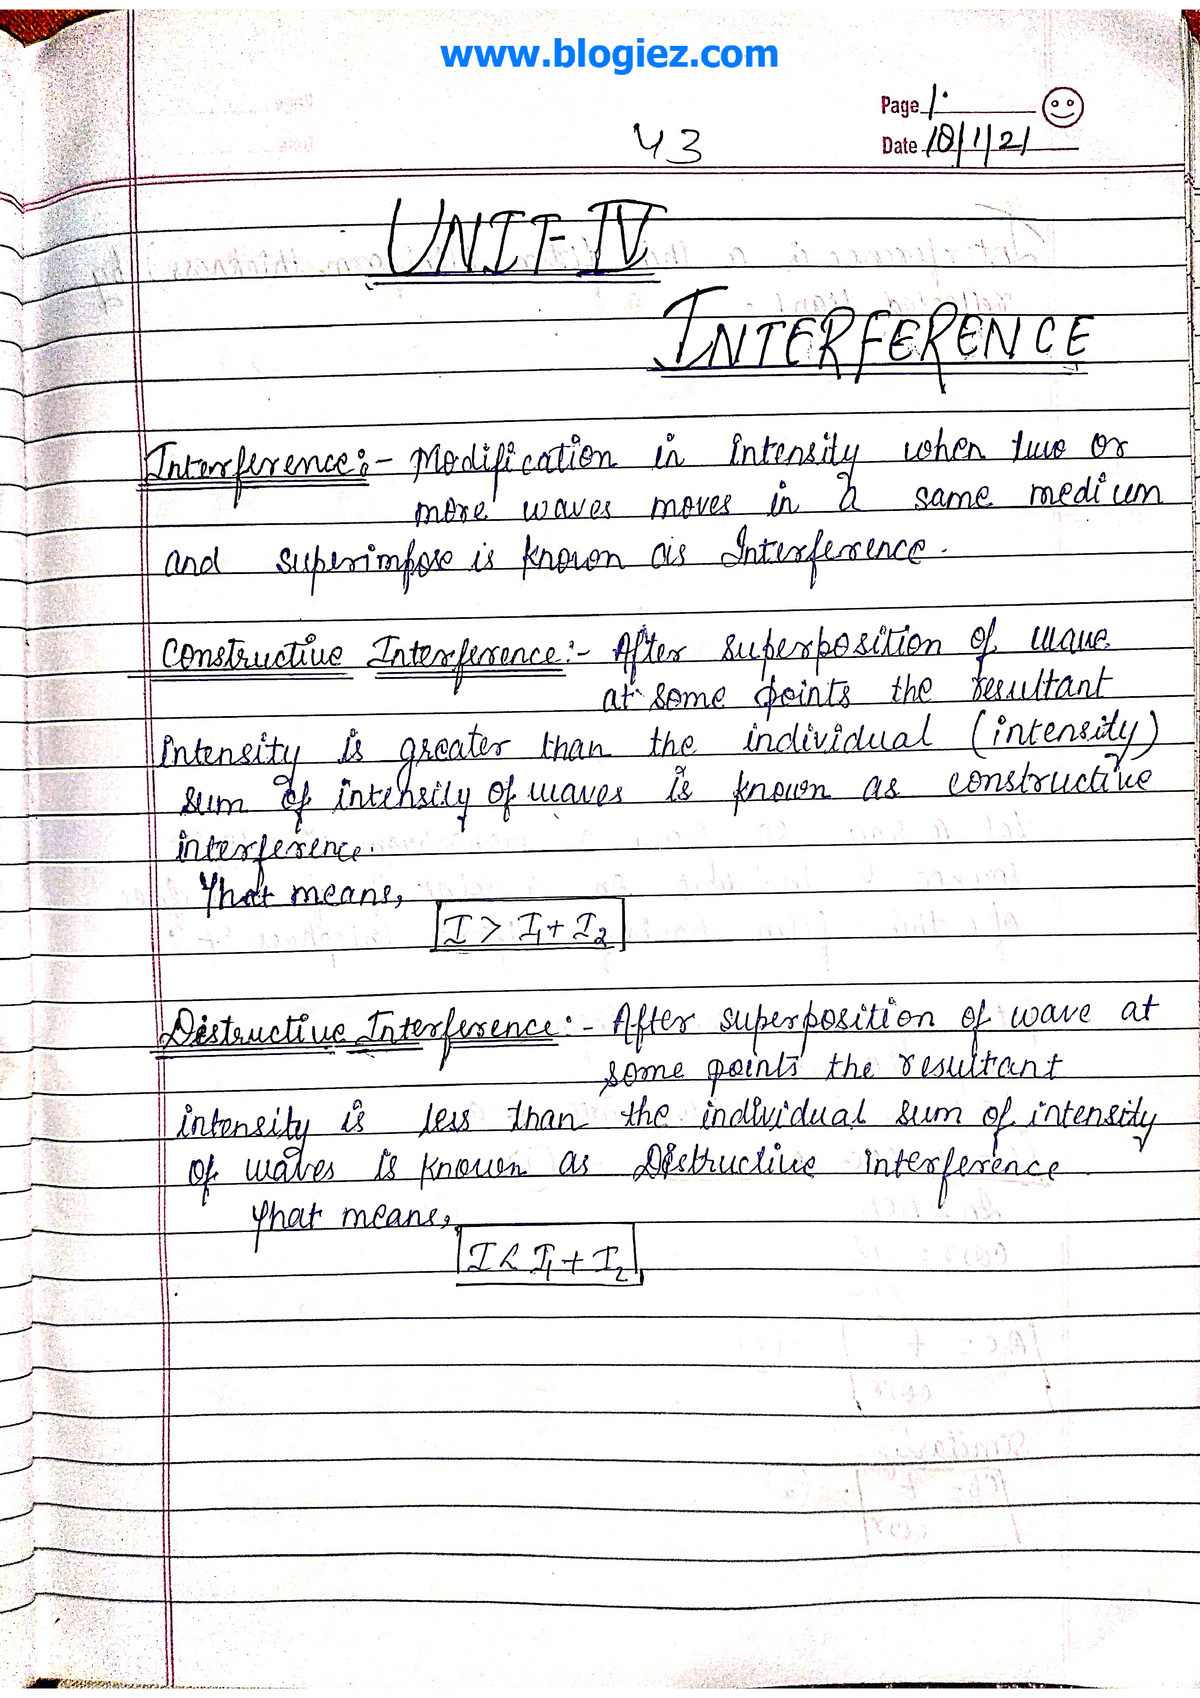 www.blogiez.com
Page 1.
43
Date 10/1/21
UNIT-IV
INTERFERENCE
Interference:- Modification in intensity when two or
more waves moves in a same medium
and superimpose is known as Interference.
Constructive Interference:- After superposition of wave
at some points the resultant
intensity is greater than the individual (intensity)
sum of intensity of waves is known as constructive
interference.
That means,
I > I1 + I2
Distructive Interference:- After superposition of wave at
some points the resultant
intensity is less than the individual sum of intensity
of waves is known as Distructive interference
That means,
I < I1 + I2